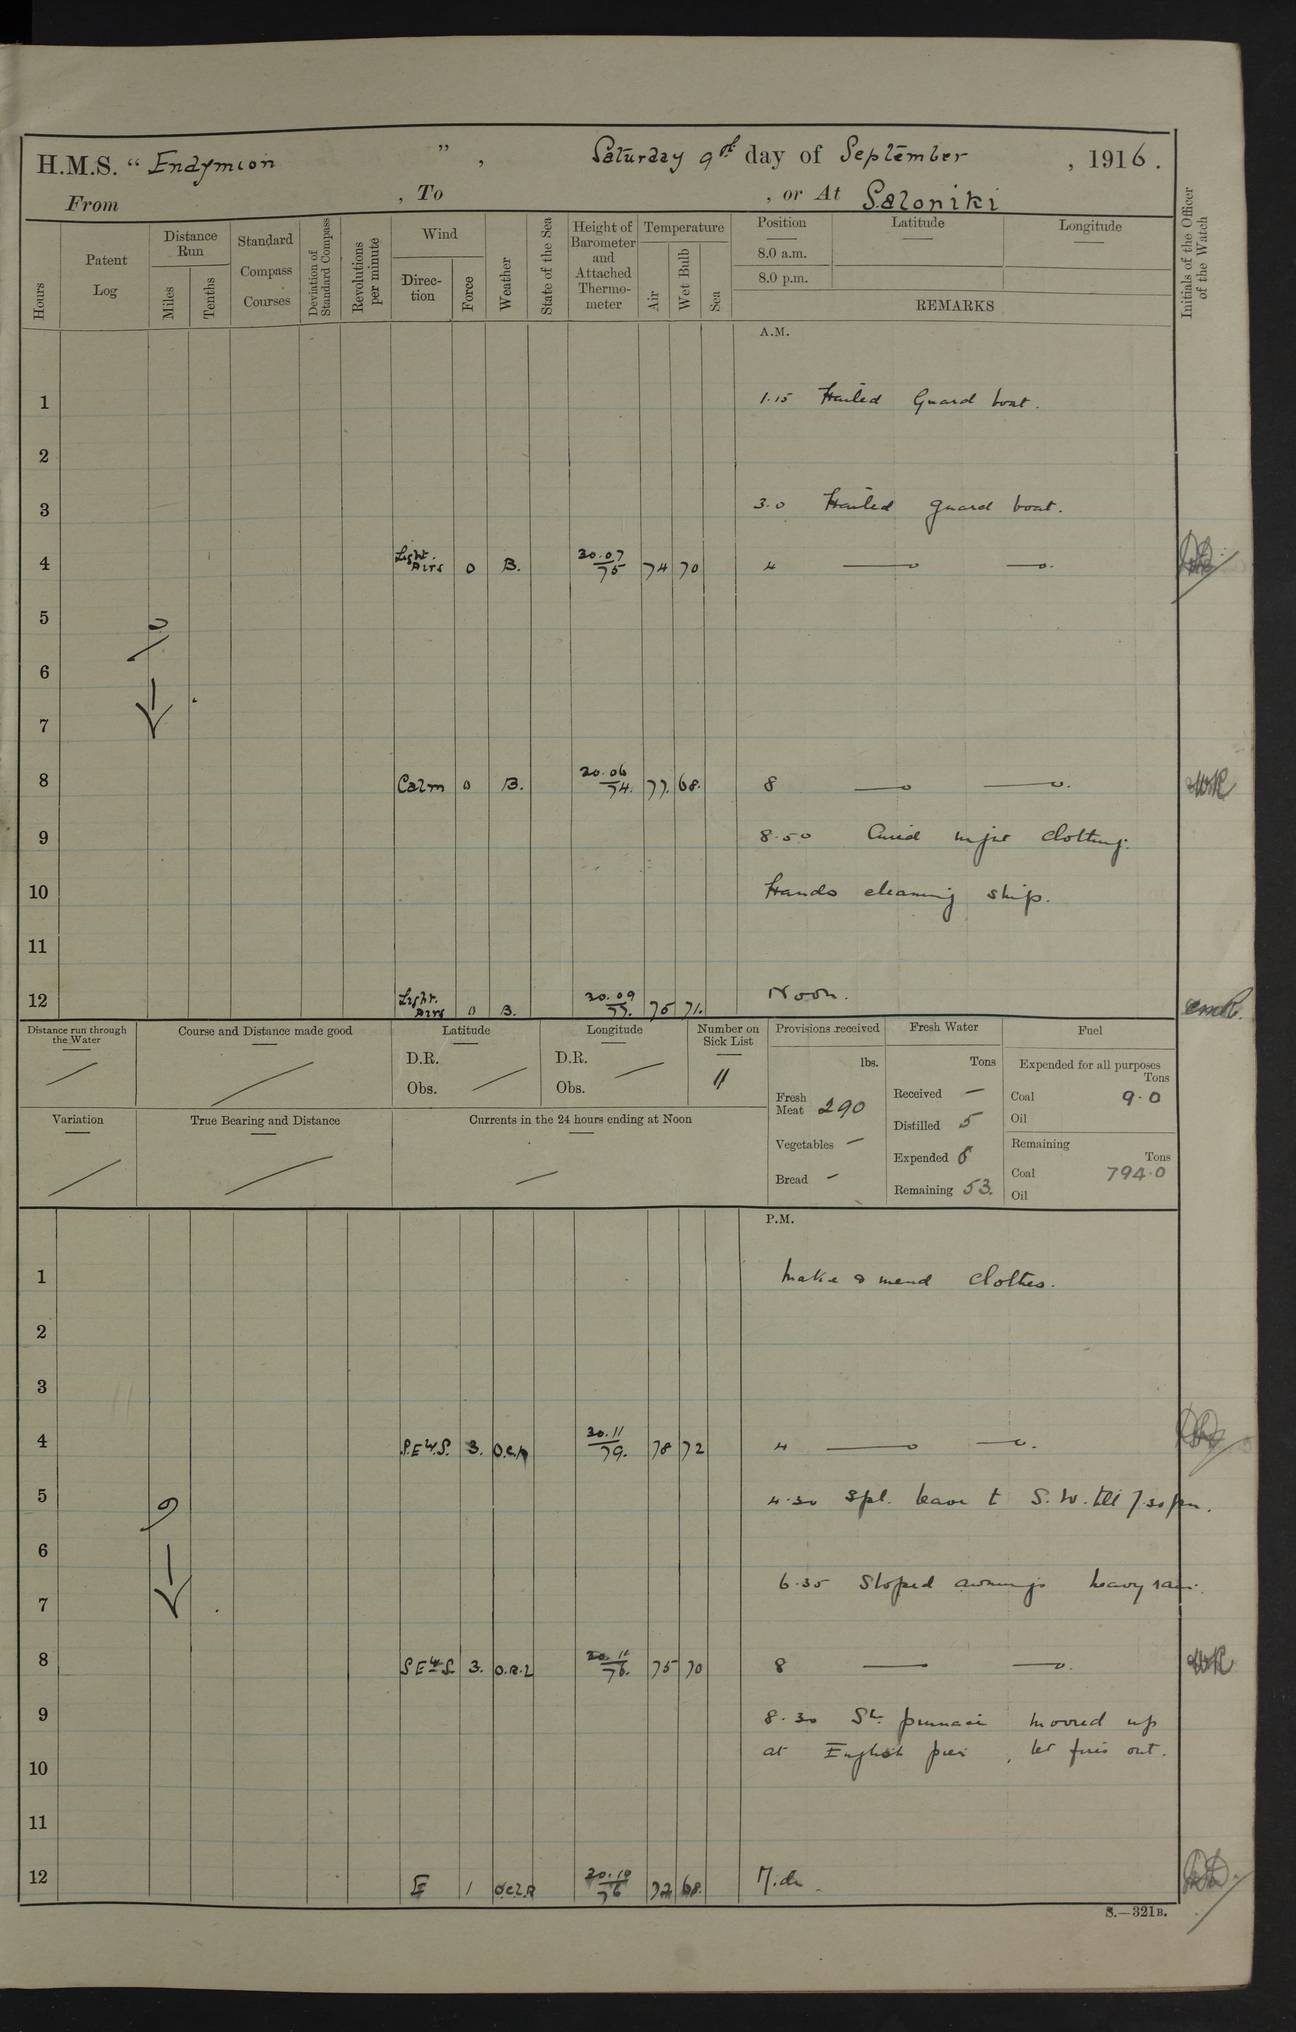 H.M.S. “ Endymion ” , Saturday 9th day of September , 1916.
From , To , or At Saloniki
Hours
Patent Log
Distance Run
Miles
Tenths
Standard Compass Courses
Deviation of Standard Compass
Revolutions per minute
Wind
Direc- tion
Force
Weather
State of the Sea
Height of Barometer and Attached Thermo- meter
Temperature
Air
Wet Bulb
Sea
Position
8.0 a.m.
8.0 p.m.
Latitude
Longitude
REMARKS
Initials of the Officer of the Watch
A.M.
1 1.15 Hailed Guard boat.
2
3 3.0 Hailed guard boat.
4 Light Airs 0 B. 30.07 75 74 70 4
5
6
7
8 Calm 0 B. 30.06 74. 77. 68. 8
9 8.50 clothing.
10 Hands cleaning ship.
11
12 Light Airs 0 B. 30.09 77. 75 71. Noon.
Distance run through the Water
Course and Distance made good
Latitude
D.R.
Obs.
Longitude
D.R.
Obs.
Number on Sick List
11
Provisions received
lbs.
Fresh Meat 290
Vegetables –
Bread –
Fresh Water
Tons
Received –
Distilled 5
Expended
Remaining 53.
Fuel
Expended for all purposes
Tons
Coal 9.0
Oil
Remaining
Tons
Coal 794.0
Oil
Variation
True Bearing and Distance
Currents in the 24 hours ending at Noon
P.M.
1 Make & mend clothes.
2
3
4 S.E.W.S. 3. 30.11 79. 78 72 4
5 4.30 Spl. leave t S.W. till 7.30 pm.
6
7 6.35 Sloped awnings heavy rain.
8 3. O.R.L 30.11 76. 75 70 8
9 8.30 St. pinnace moored up
10 at English pier, let fires out.
11
12 E 1 30.10 76 72 68. Mid.
S.—321B.